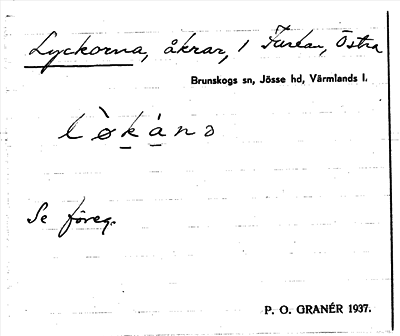 Lyckorna, åkrar, i Furtan, Östra
Brunskogs sn, Jösse hd, Värmlands l.
lò̱ká̱nɔ
Se föreg.
P. O. GRANÉR 1937.